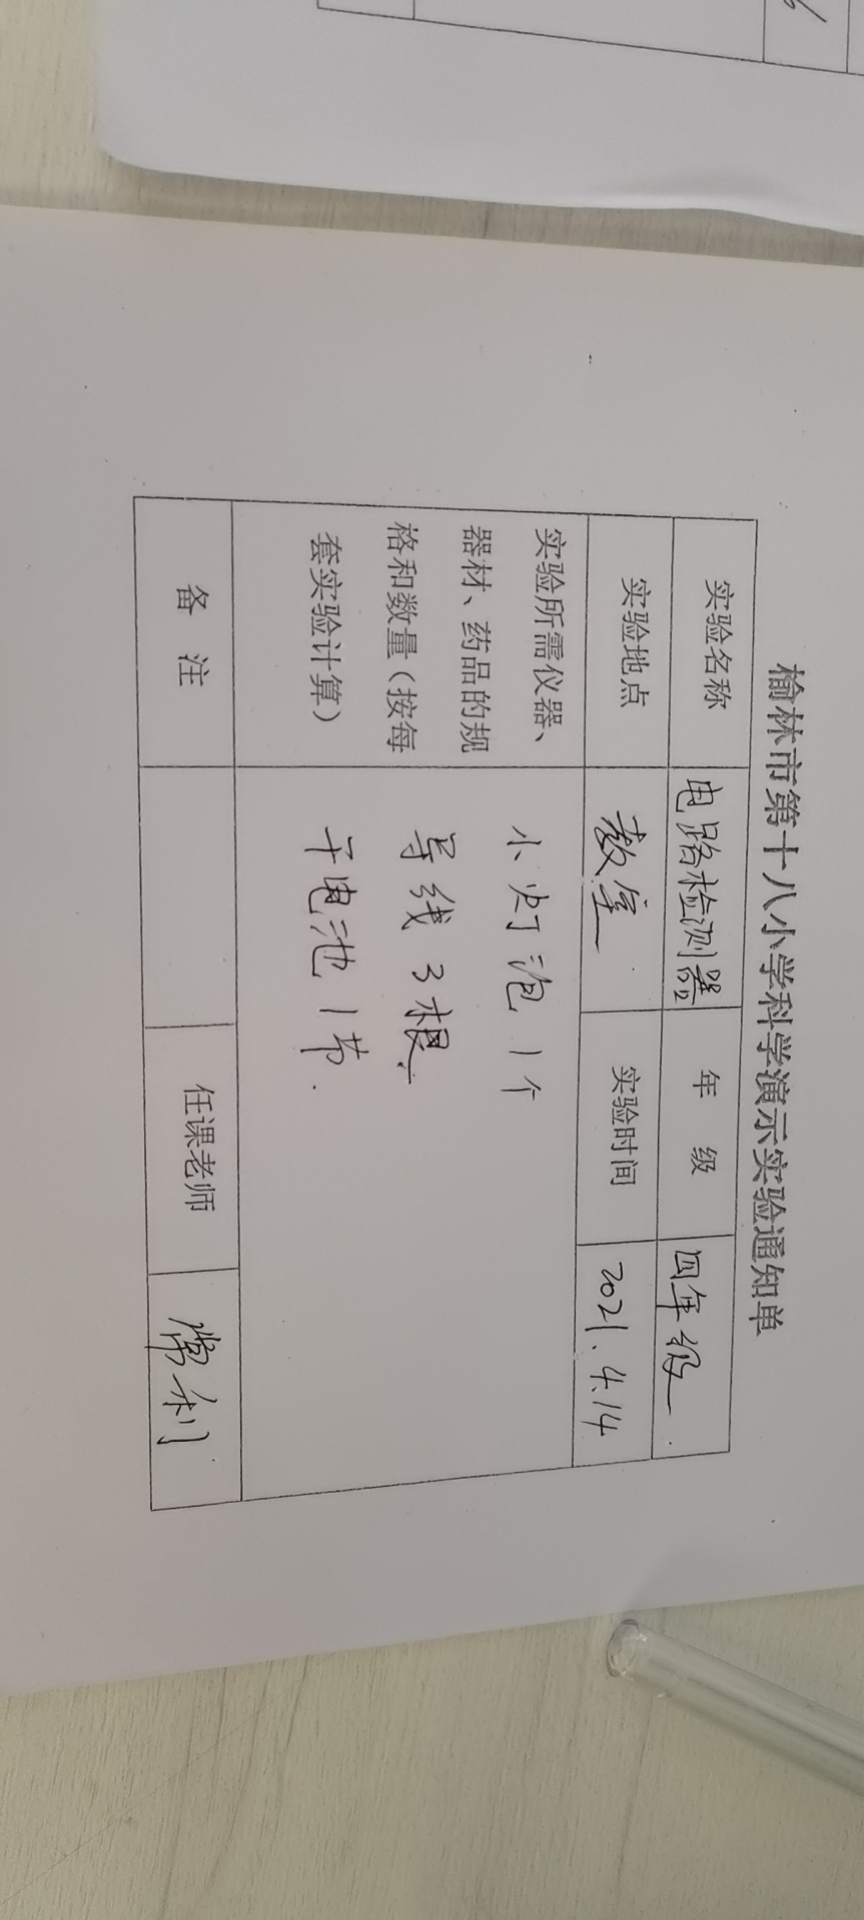 榆林市第十八小学科学演示实验通知单
实验名称 电路检测器 年 级 四年级
实验地点 教室 实验时间 2021.4.14
实验所需仪器、
器材、药品的规
格和数量（按每
套实验计算）
小灯泡 1个
导线 3根
干电池 1节.
备 注 任课老师 常利